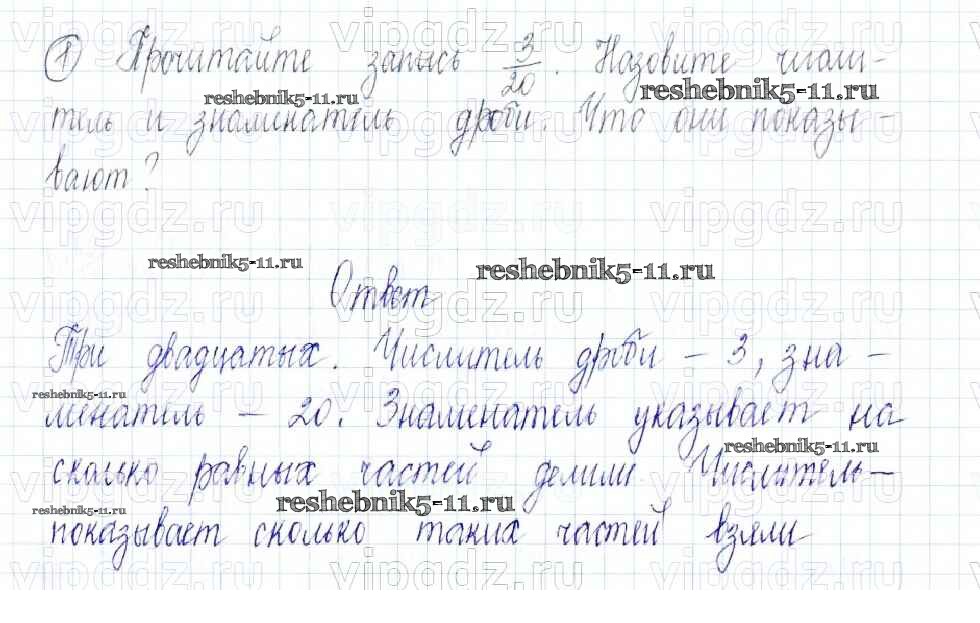 1 Прочитайте запись 3/20. Назовите числи-
тель и знаменатель дроби. Что они показы-
вают?
Ответ
Три двадцатых. Числитель дроби – 3, зна-
менатель – 20. Знаменатель указывает на
сколько равных частей делили Числитель –
показывает сколько таких частей взяли
reshebnik5-11.ru
reshebnik5-11.ru
reshebnik5-11.ru
reshebnik5-11.ru
reshebnik5-11.ru
reshebnik5-11.ru
reshebnik5-11.ru
reshebnik5-11.ru
vipgdz.ru